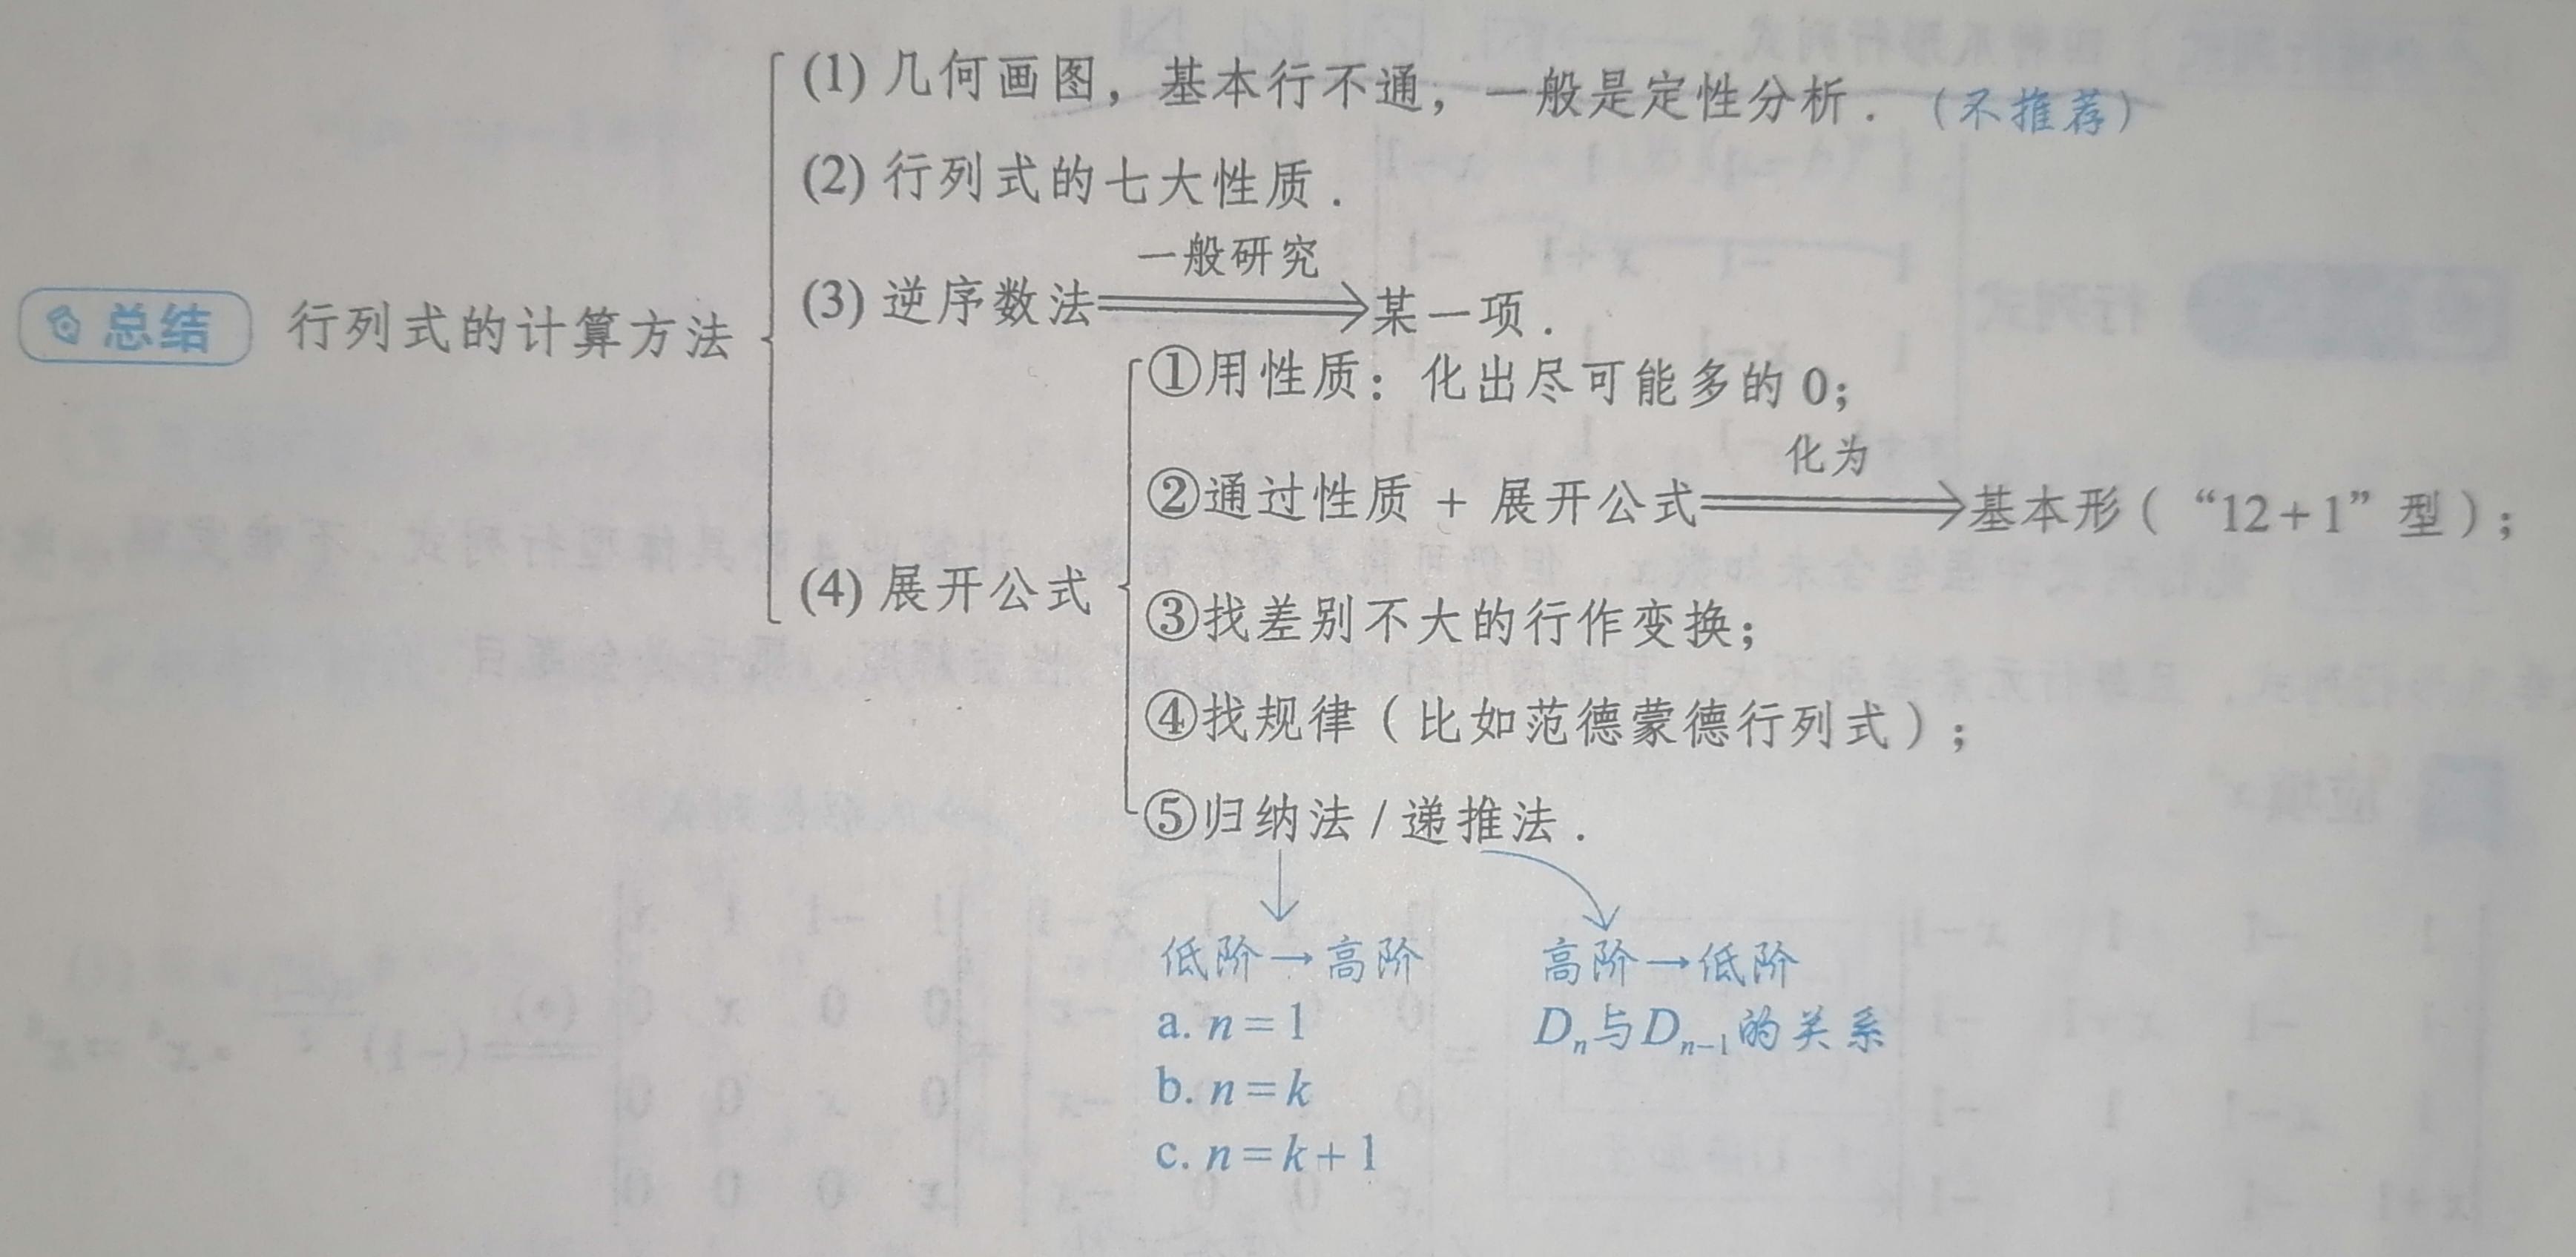 (1) 几何画图，基本行不通，一般是定性分析．（不推荐）
(2) 行列式的七大性质．
一般研究
(3) 逆序数法⟹某一项．
总结 行列式的计算方法
①用性质：化出尽可能多的 0；
化为
②通过性质 + 展开公式⟹基本形（“12+1”型）；
(4) 展开公式
③找差别不大的行作变换；
④找规律（比如范德蒙德行列式）；
⑤归纳法 / 递推法．
低阶→高阶 高阶→低阶
a. n=1 Dn与Dn-1的关系
b. n=k
c. n=k+1